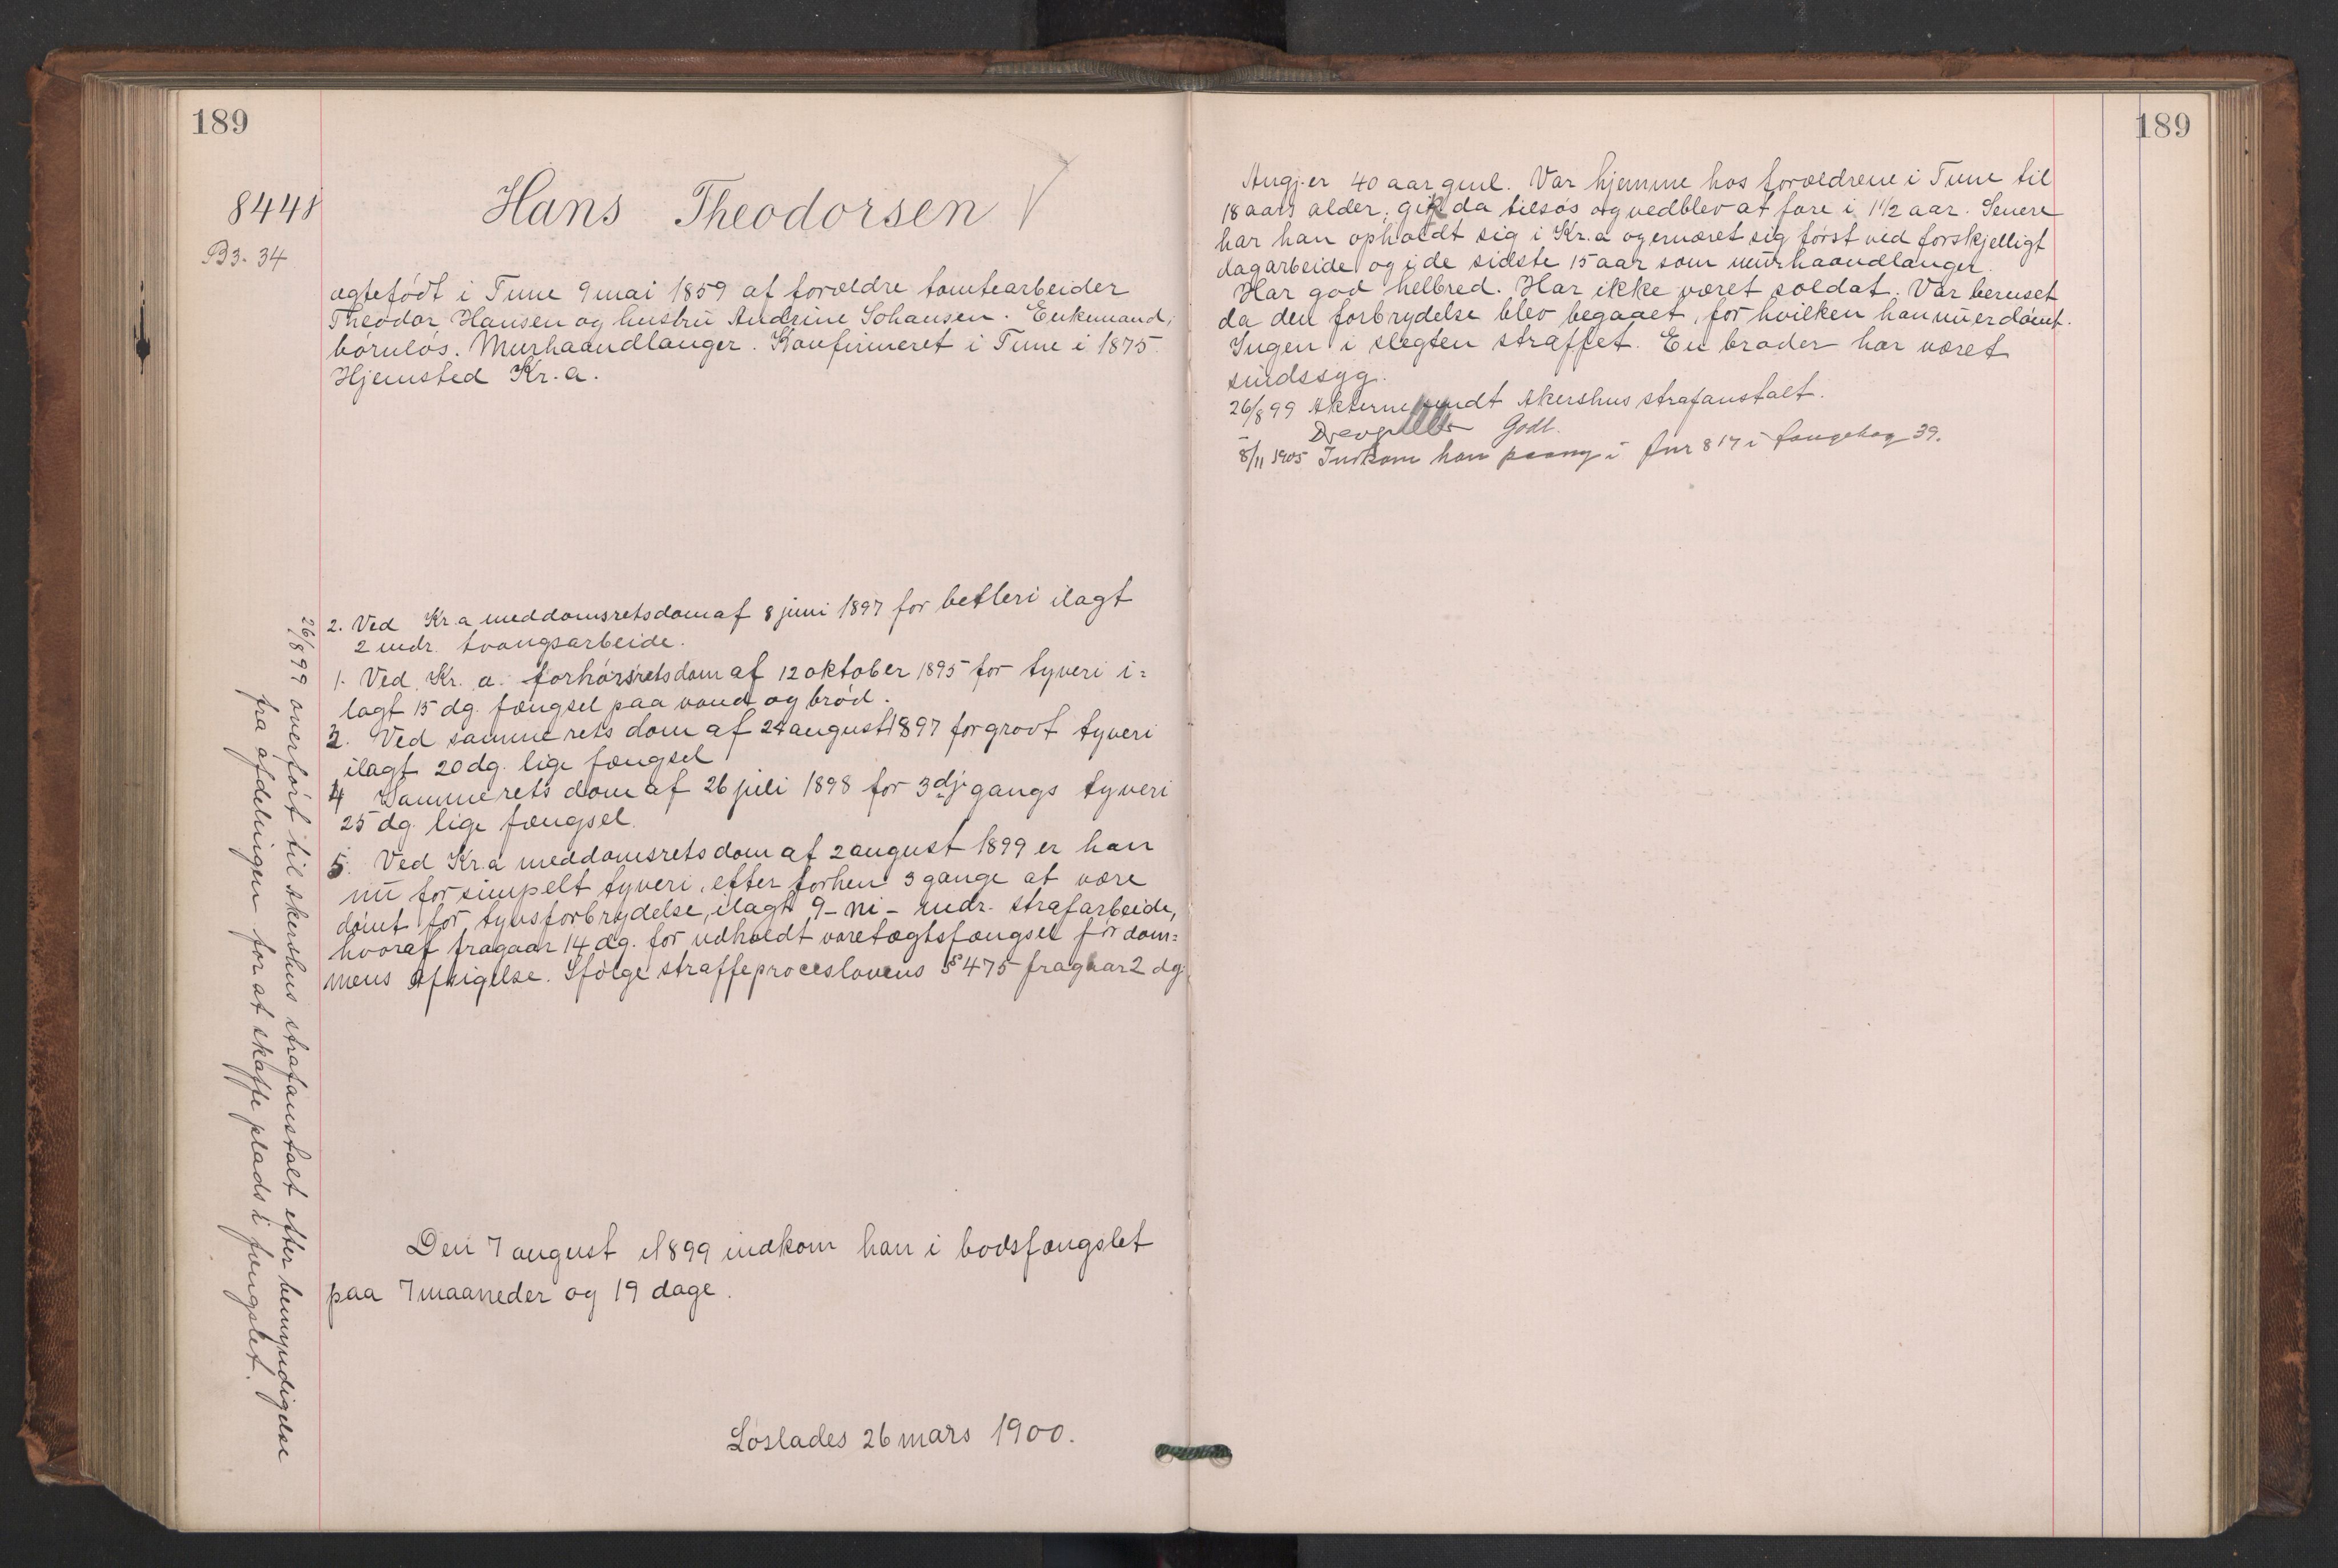 189
8448
B3. 34
Hans Theodorsen
ægtefødt i Tune 9 mai 1859 af forældre tomtearbeider
Theodor Hansen og hustru Andrine Johansen. Enkemand,
børnløs. Murhaandlanger. Konfirmeret i Tune i 1875.
Hjemsted Kr.a.
2. Ved Kr.a meddomsretsdom af 8 juni 1897 for betleri ilagt
2 mdr. tvangsarbeide.
1. Ved Kr. a. forhørsretsdom af 12 oktober 1895 for tyveri i=
lagt 15 dg. fængsel paa vand og brød.
3. Ved samme rets dom af 24 august 1897 for grovt tyveri
ilagt 20 dg. lige fængsel
4 Samme rets dom af 26 juli 1898 for 3dje gangs tyveri
25 dg. lige fængsel.
5. Ved Kr.a meddomsretsdom af 2 august 1899 er han
nu for simpelt tyveri, efter forhen 3 gange at være
dømt for tyvsforbrydelse, ilagt 9 - ni - mdr. strafarbeide,
hvoraf fragaar 14 dg. for udholdt varetægtsfængsel før dom=
mens afsigelse. Ifølge straffeproceslovens § 475 fragaar 2 dg.
Den 7 august 1899 indkom han i bodsfængslet
paa 7 maaneder og 19 dage.
Løslades 26 mars 1900.
26/8 99 overført til Akershus strafanstalt efter bemyndigelse
fra afdelingen for at skaffe plads i fængslet.
189
Angj. er 40 aar gml. Var hjemme hos forældrene i Tune til
18 aars alder, gik da tilsøs og vedblev at fare i 1 1/2 aar. Senere
har han opholdt sig i Kr.a og ernæret sig først ved forskjelligt
dagarbeide og i de sidste 15 aar som murhaandlanger.
Har god helbred. Har ikke været soldat. Var beruset
da den forbrydelse blev begaaet, for hvilken han nu er dømt.
Ingen i slegten straffet. En broder har været
sindssyg.
26/8 99 Akterne sendt Akershus strafanstalt.
Godt.
8/11 1905 Indkom han paany i fnr 817 i fangebog 39.